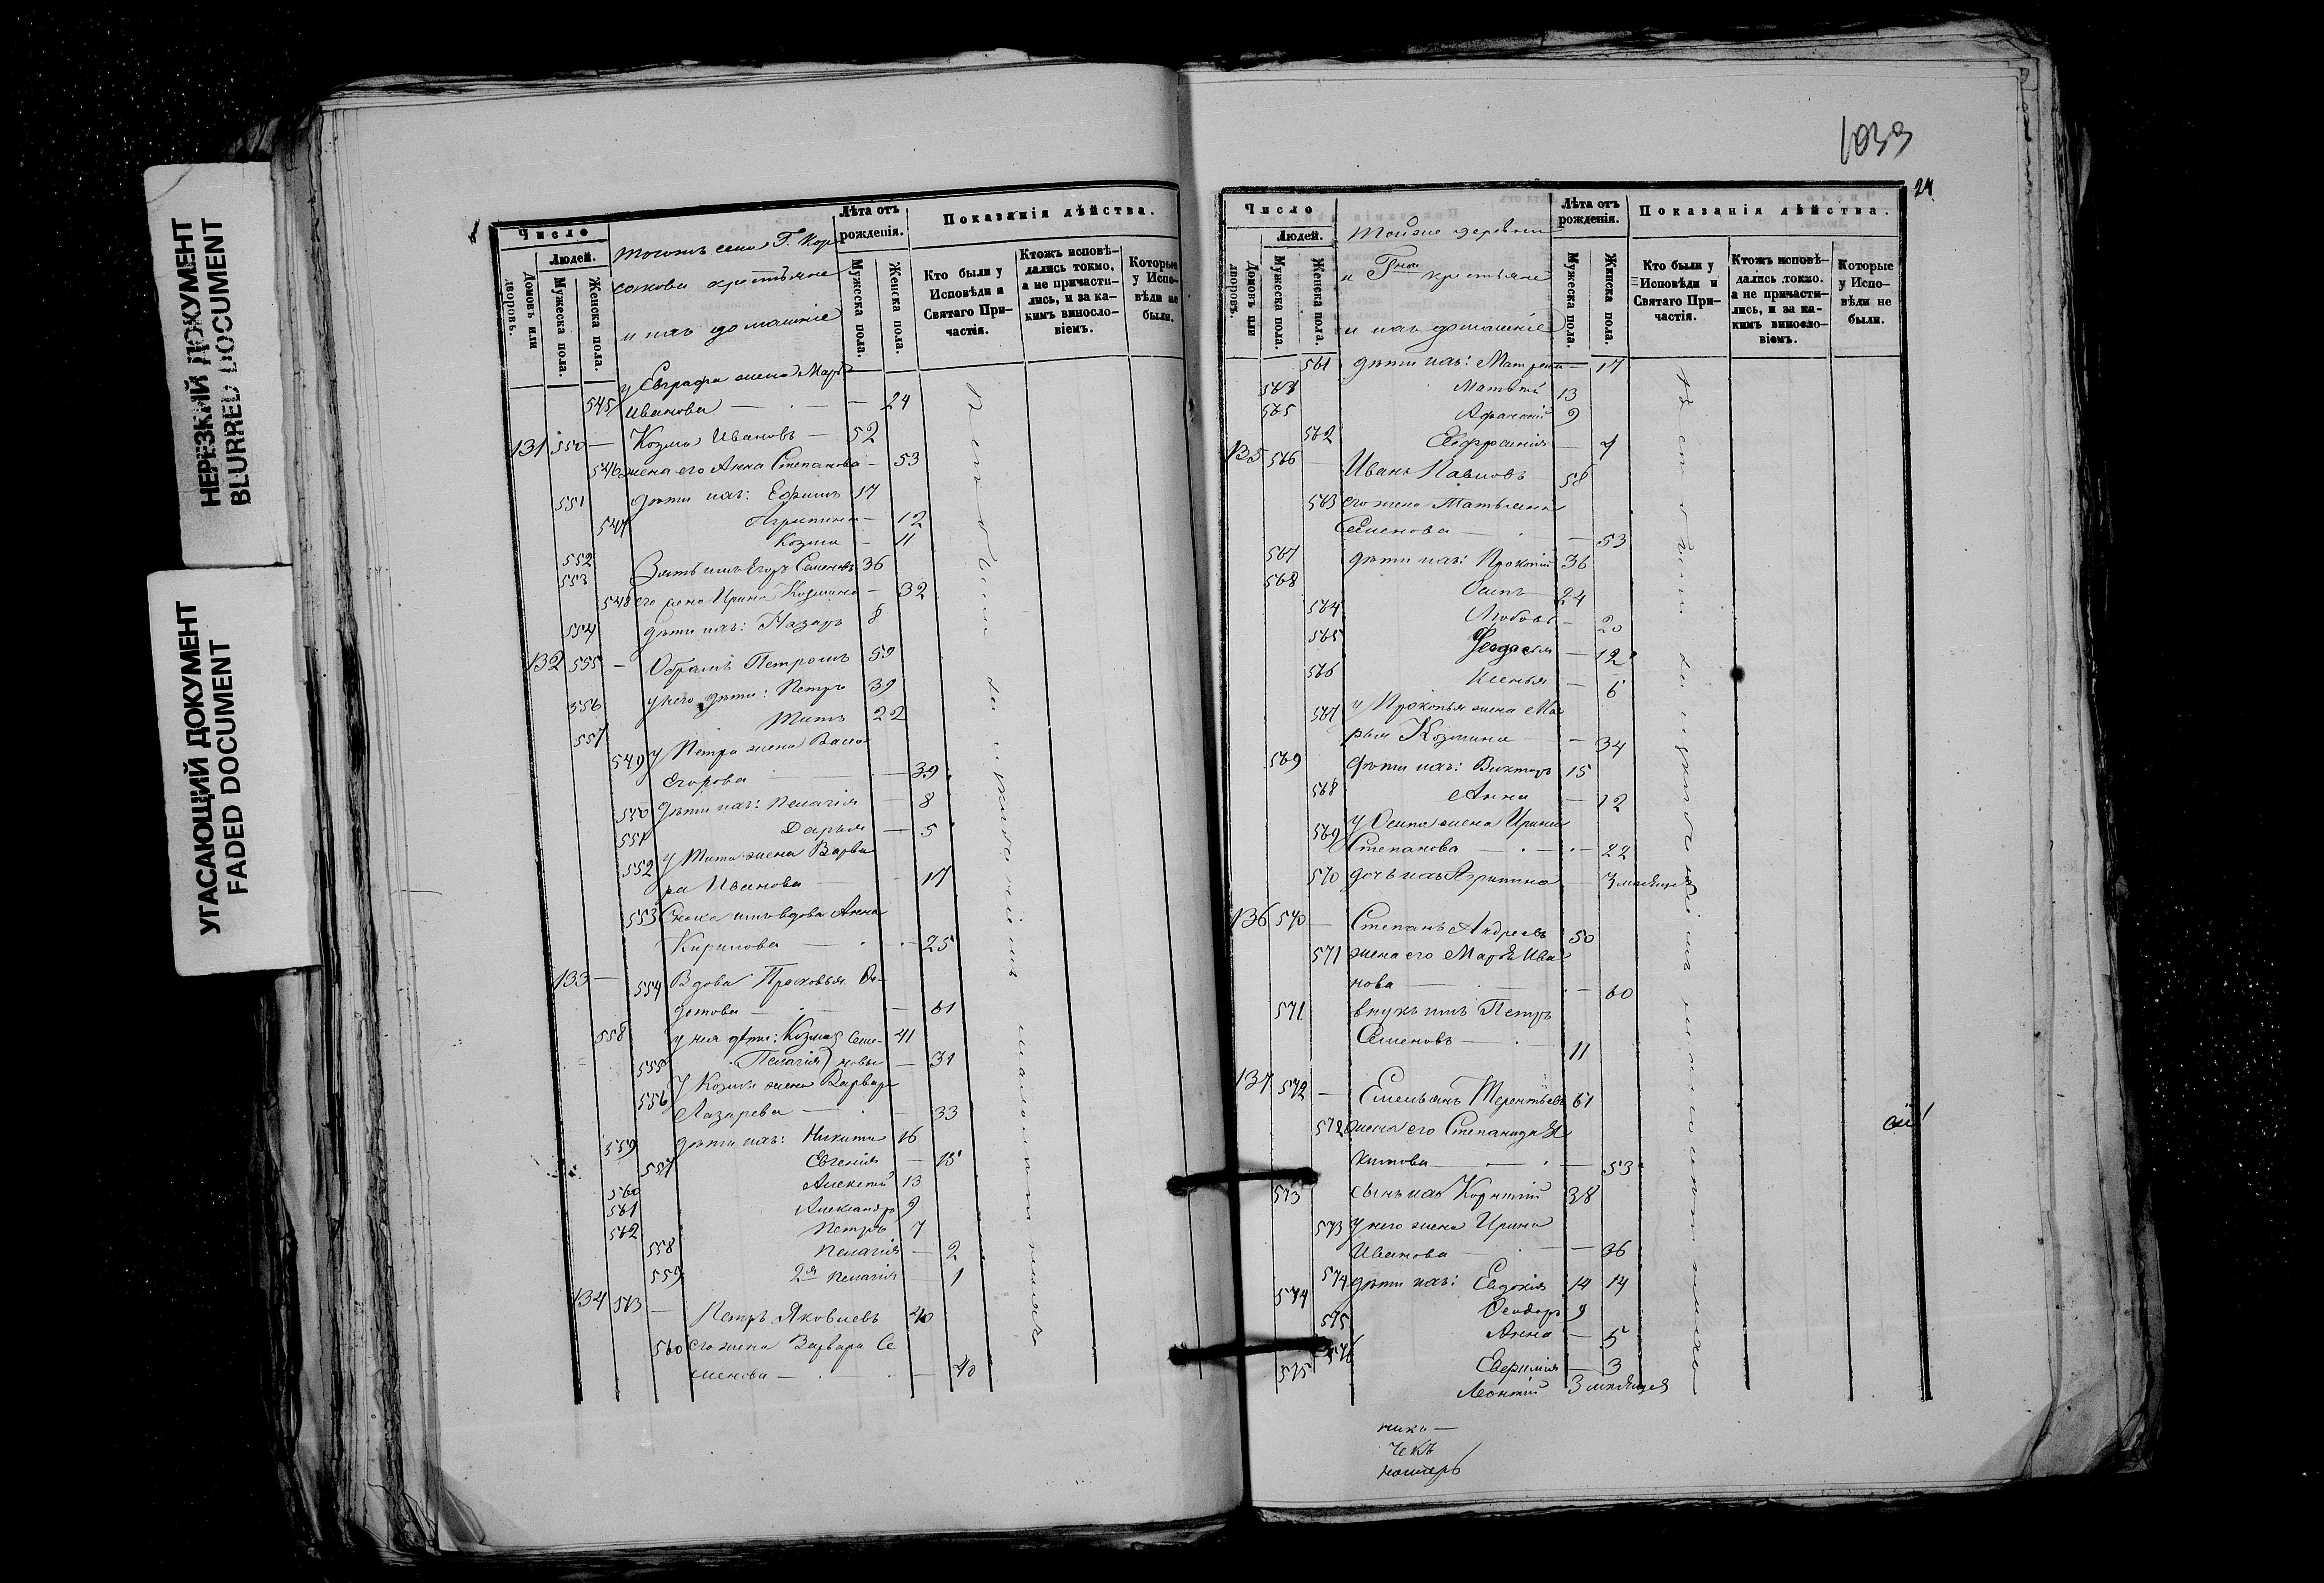 НЕРЕЗКИЙ ДОКУМЕНТ
BLURRED DOCUMENT
УГАСАЮЩИЙ ДОКУМЕНТ
FADED DOCUMENT
Число
Людей.
Домовъ или дворовъ.
Мужеска пола.
Женска пола.
тогожъ села Г. Кор
сакова крестьяне
и ихъ домашніе
Лѣта отъ рожденія.
Мужеска пола.
Женска пола.
Показанія дѣйства.
Кто были у Исповѣди и Святаго Причастія.
Ктожъ исповѣдались токмо, а не причастились, и за какимъ винословіемъ.
Которые у Исповѣди не были.
у Евграфа жена Марѳа
545 Иванова — 24
131 550 — Козма Ивановъ — 52
546 жена его Анна Степанова — 53
551 дѣти ихъ: Ефимъ 17
547 Агрипина — 12
552 Козма — 11
553 Зять ихъ Егоръ Семеновъ 36
548 его жена Ирина Козмина — 32
554 дѣти ихъ: Назаръ 8
132 555 — Абрамъ Петровъ 59
556 у него дѣти: Петръ 39
557 Титъ 22
549 у Петра жена Васса
Егорова — 39
550 дѣти ихъ: Пелагія — 8
551 Дарья — 5
552 у Тита жена Варва
ра Иванова — 17
553 Сноха ихъ вдова Анна
Кирилова — 25
133 — 554 Вдова Прасковья Ѳе-
дотова — 61
558 у нея дѣти: Козма Семе- 41
555 Пелагія новы — 31
556 У Козмы жена Варвара
Лазарева — 33
559 дѣти ихъ: Никита 16
557 Евгенія — 15
560 Алексѣй 13
561 Александръ 9
562 Петръ 7
558 Пелагія — 2
559 2я Пелагія — 1
134 563 — Петръ Яковлевъ 40
560 его жена Варвара Се
менова — 40
1033
24
Число
Людей.
Домовъ или дворовъ.
Мужеска пола.
Женска пола.
Тойже деревни
и Гна крестьяне
и ихъ домашніе
Лѣта отъ рожденія.
Мужеска пола.
Женска пола.
Показанія дѣйства.
Кто были у Исповѣди и Святаго Причастія.
Ктожъ исповѣдались токмо, а не причастились, и за какимъ винословіемъ.
Которые у Исповѣди не были.
561 дѣти ихъ: Матрена — 17
564 Матвѣй 13
565 Афанасій 9
562 Евфросинія — 4
135 566 Иванъ Павловъ 58
563 его жена Татьяна
Семенова — 53
567 дѣти ихъ: Прокопій 36
568 Осипъ 24
564 Любовь — 20
565 Ѳеодосія — 12
566 Ксенья — 6
567 у Прокопья жена Ма
рья Козмина — 34
569 дѣти ихъ: Викторъ 15
568 Анна — 12
569 У Осипа жена Ирина
Степанова — 22
570 дочь ихъ Агрипина — 3 мѣсяца
136 570 — Степанъ Андреевъ 50
571 жена его Марѳа Ива
нова — 60
571 внукъ ихъ Петръ
Семеновъ — 11
137 572 — Емельянъ Терентьевъ 61
572 жена его Степанида
китова — 53
573 сынъ ихъ Корнилій 38
573 у него жена Ирина
Иванова — 36
574 дѣти ихъ: Евдокія 14 14
574 Ѳеодоръ 9
575 Анна — 5
576 Евфимія — 3
575 Леонтій 3 мѣсяца